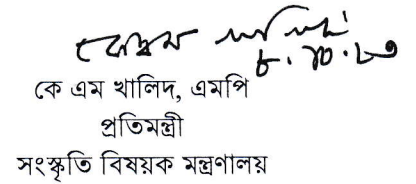 ৮.১০.২৩
কে এম খালিদ, এমপি
প্রতিমন্ত্রী
সংস্কৃতি বিষয়ক মন্ত্রণালয়